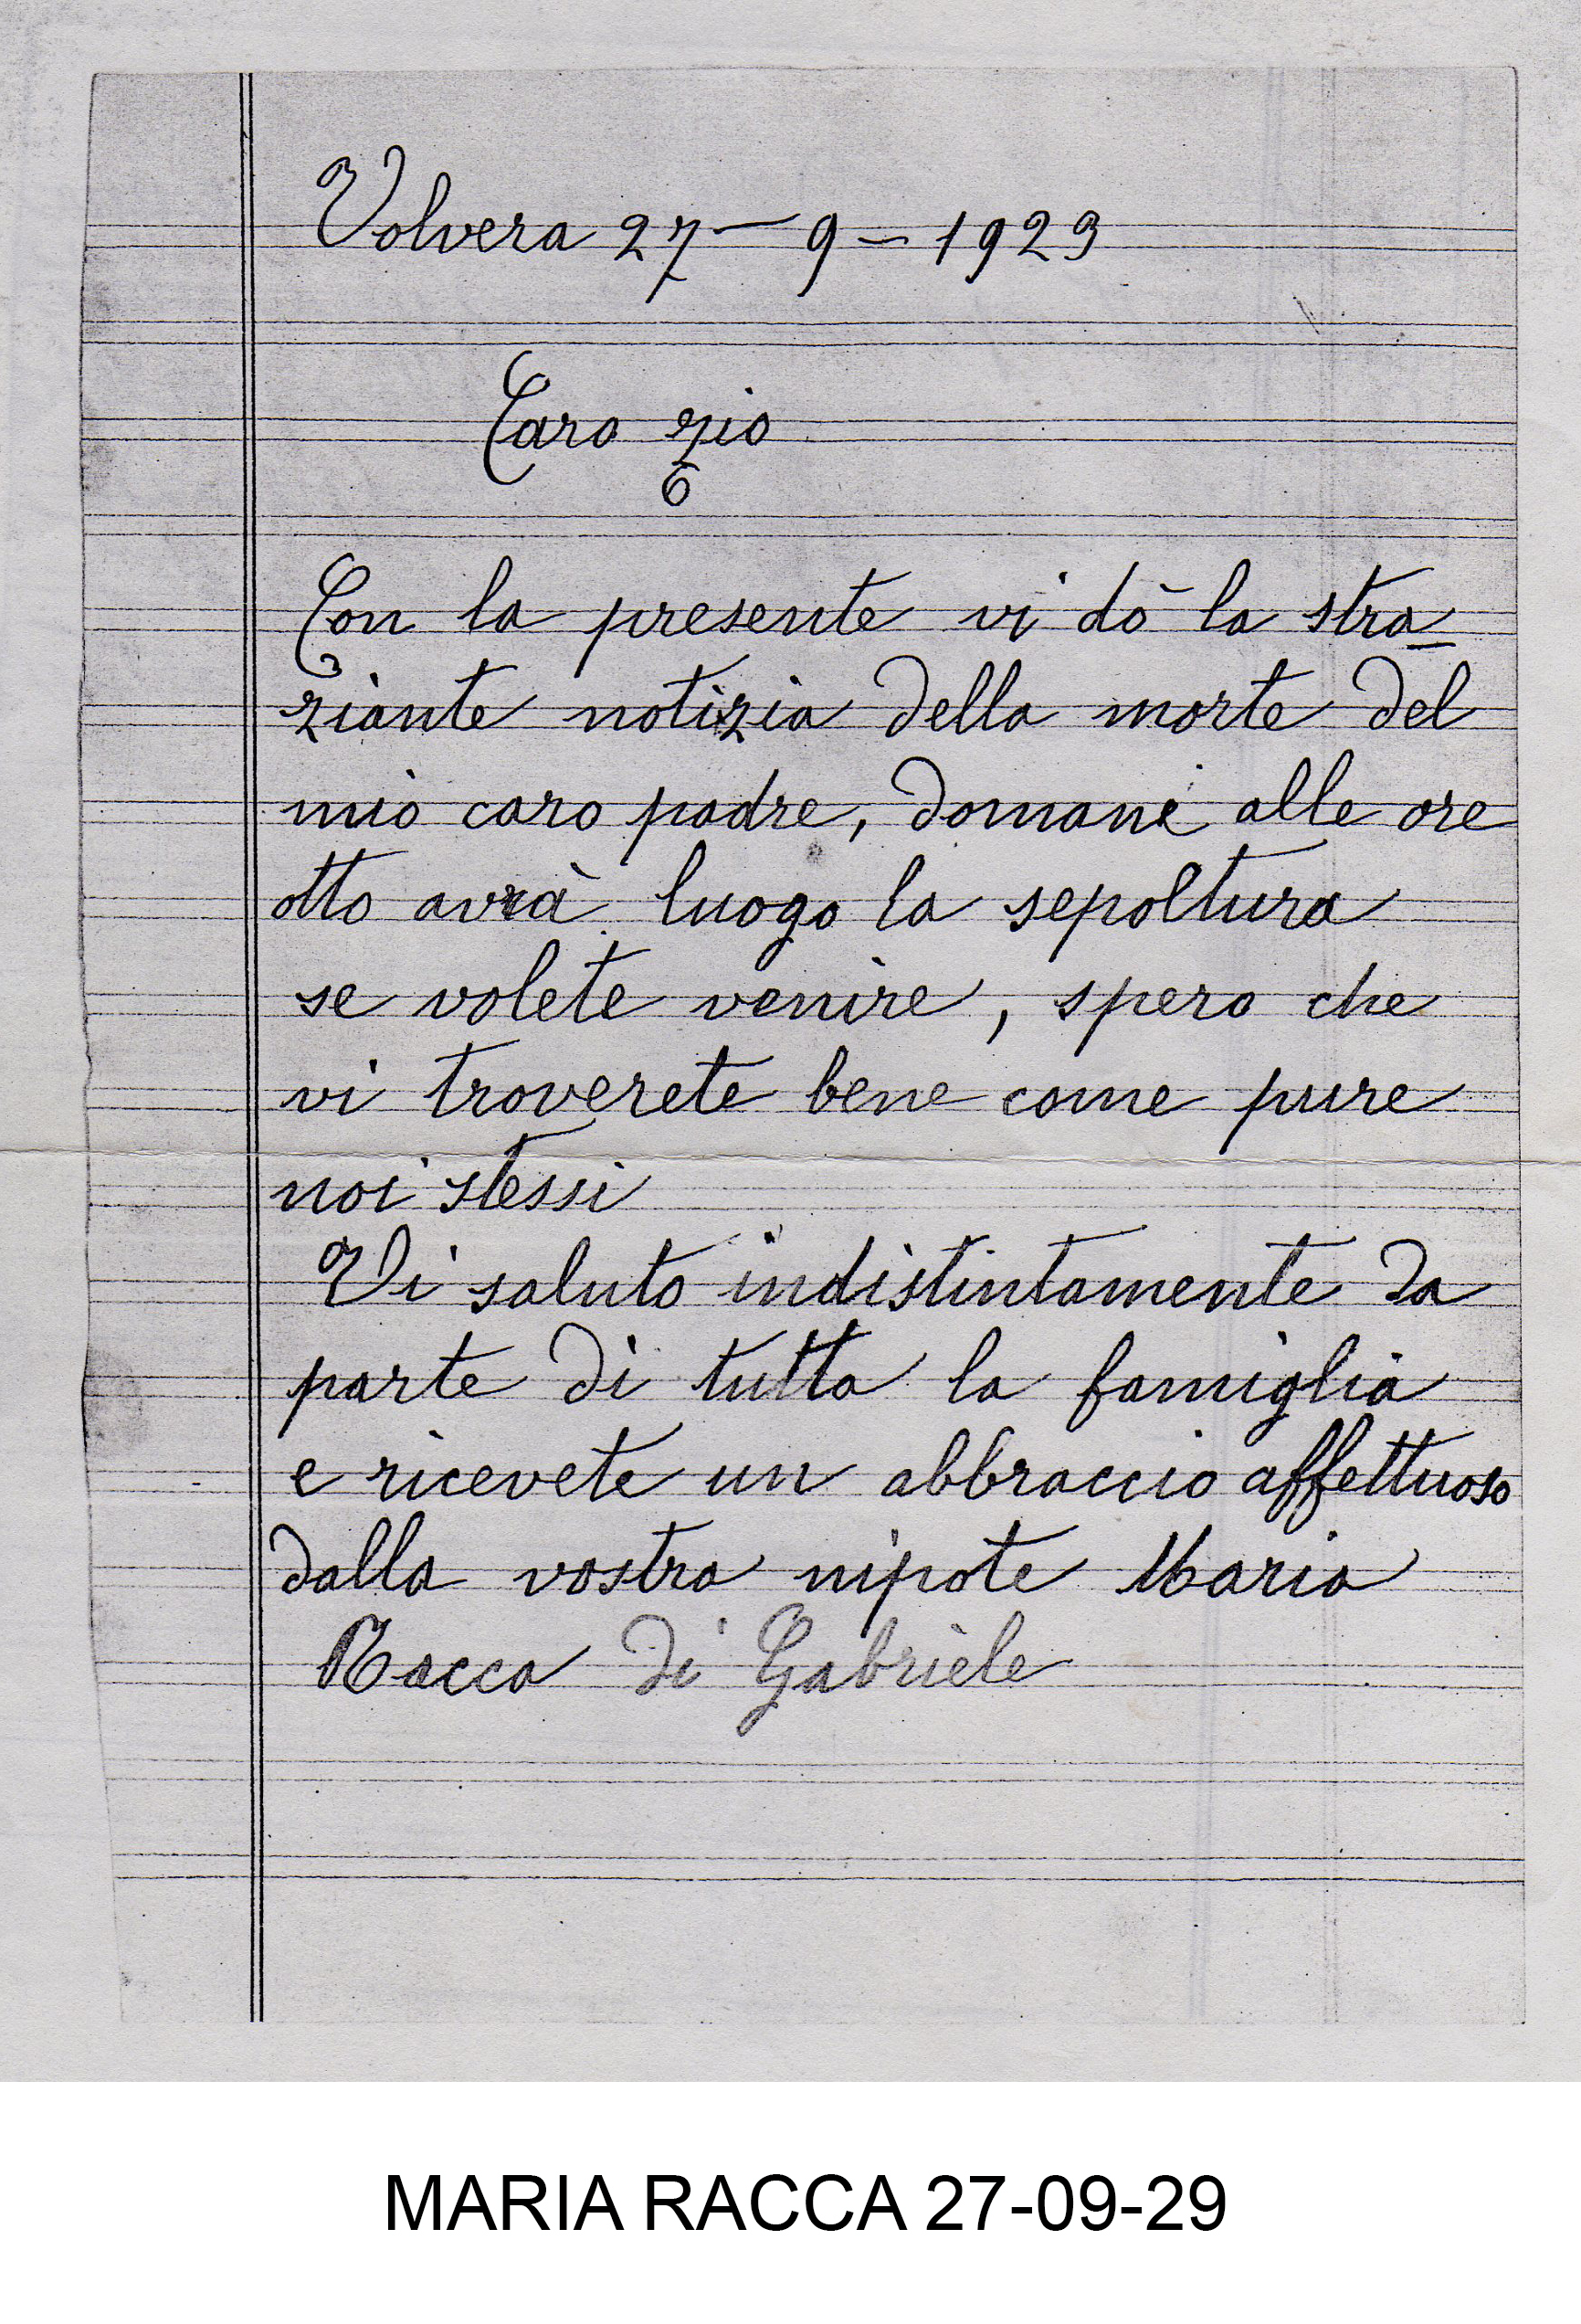 Volvera 27 - 9 - 1929
Caro zio
Con la presente vi dò la stra-
ziante notizia della morte del
mio caro padre, domani alle ore
otto avrà luogo la sepoltura
se volete venire, spero che
vi troverete bene come pure
noi stessi
Vi saluto indistintamente da
parte di tutta la famiglia
e ricevete un abbraccio affettuoso
dalla vostra nipote Maria
Racca di Gabriele
MARIA RACCA 27-09-29